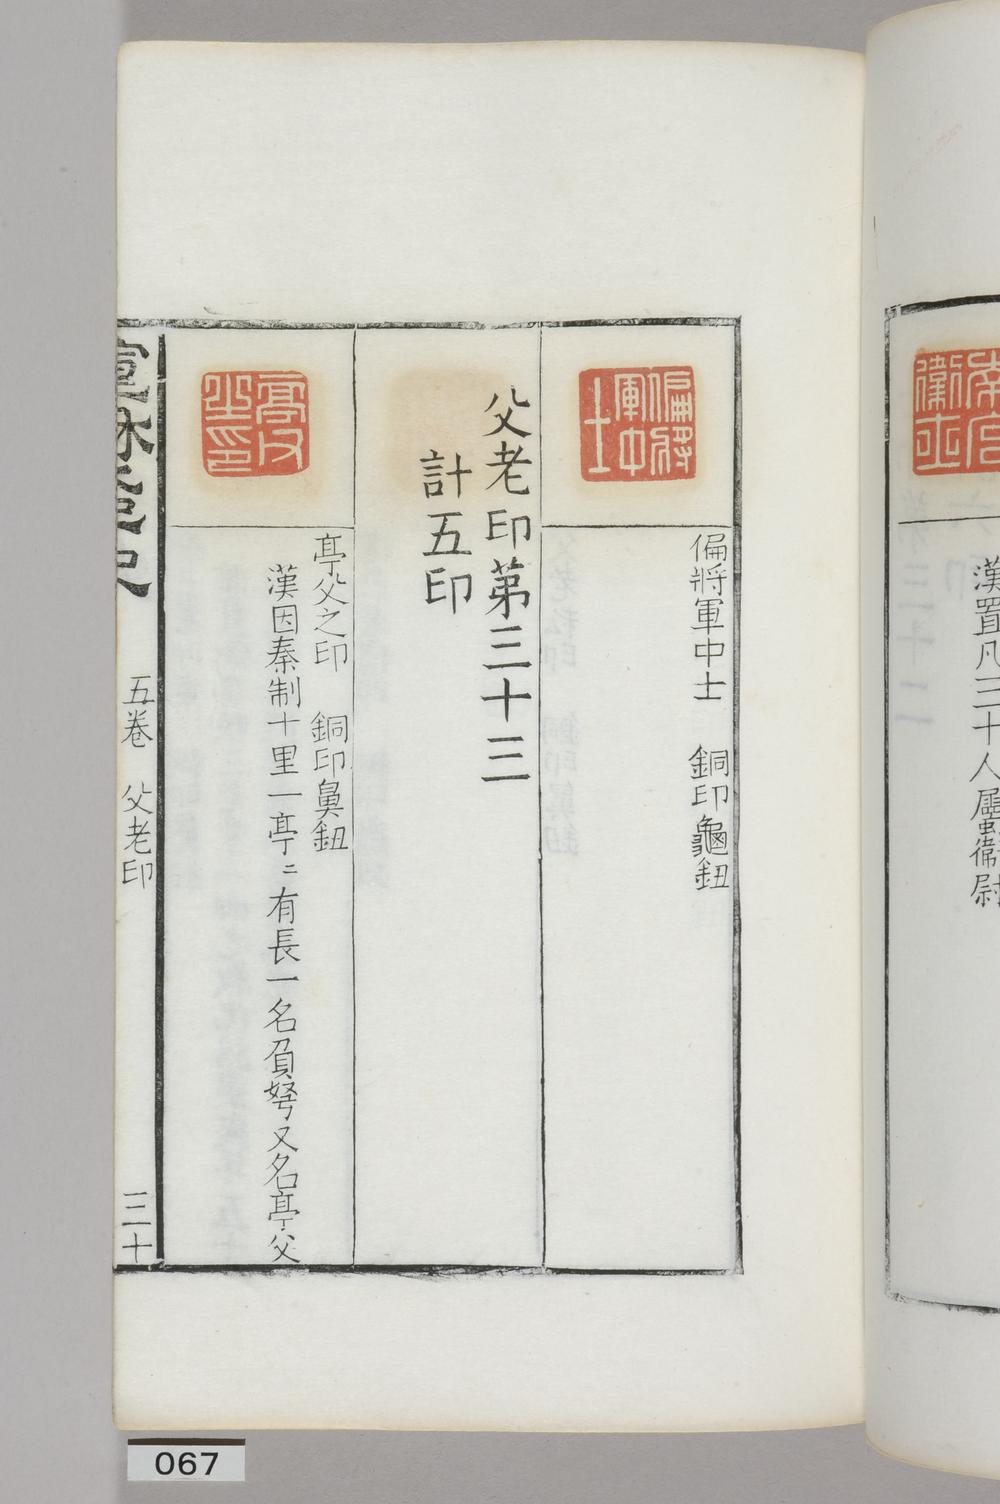 衛
漢置凡三十人屬衛尉
偏將軍中士
偏將軍中士　銅印龜鈕
父老印第三十三
計五印
亭父之印
亭父之印　銅印鼻鈕
漢因秦制十里一亭〻有長一名負弩又名亭父
五卷　父老印
三十
067